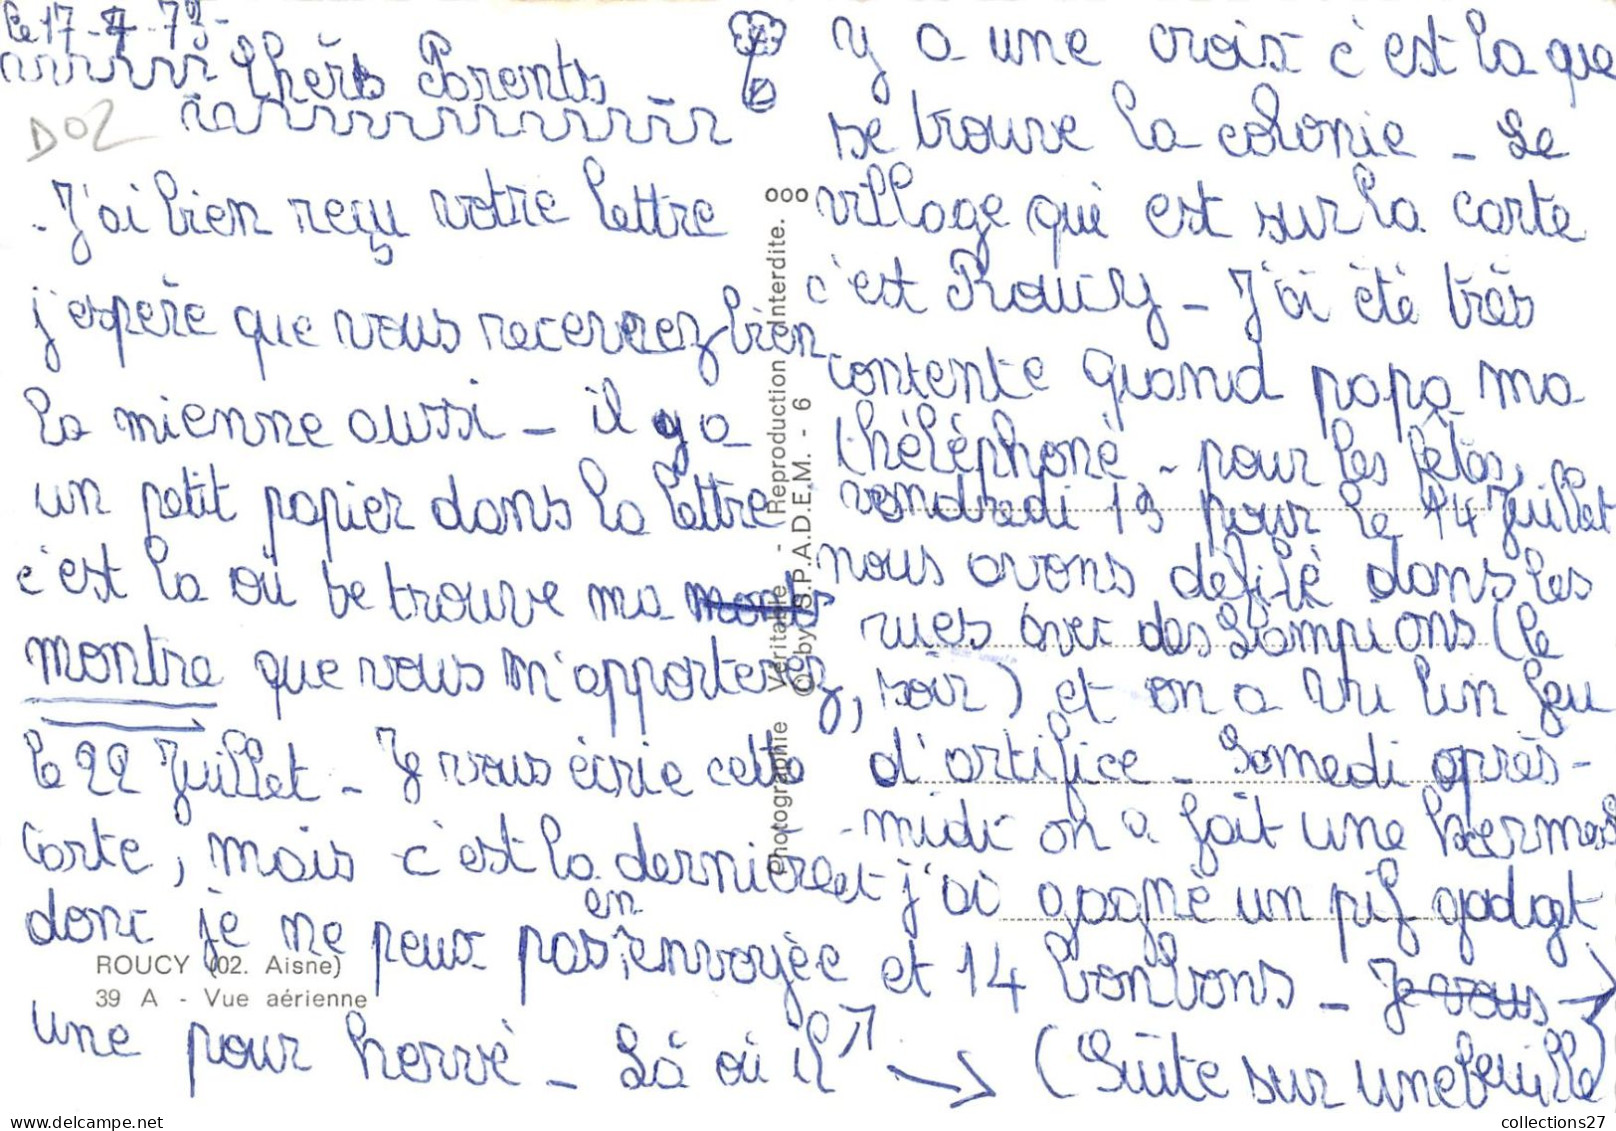 le 17-7-73-
Chers Parents
D02
- J'ai bien reçu votre lettre
j'espère que vous recevrez bien
la mienne aussi - il y a
un petit papier dans la lettre
c'est la où se trouve ma
montre que vous m'apporterez,
le 22 Juillet - Je vous écrie cette
carte, mais c'est la dernière
donc je ne peux pas en envoyèe
une pour hervé - Là où il
ROUCY (02. Aisne)
39 A - Vue aérienne
Photographie Véritable - Reproduction Interdite.
© by S.P.A.D.E.M. - 6
y a une croix c'est la que
se trouve la colonie - Le
village qui est sur la carte
c'est Roucy - J'ai été très
contente quand papa ma
théléphoné - pour les fêtes, ce
vendredi 13 pour le 14 Juillet
nous avons défilé dans les
rues avec des Lampions (le
soir) et on a vu un feu
d'artifice - Samedi après-
midi on a fait une kermes
et j'ai gagné un pif gadget
et 14 bonbons - Je vous
(Suite sur une feuille)
collections27